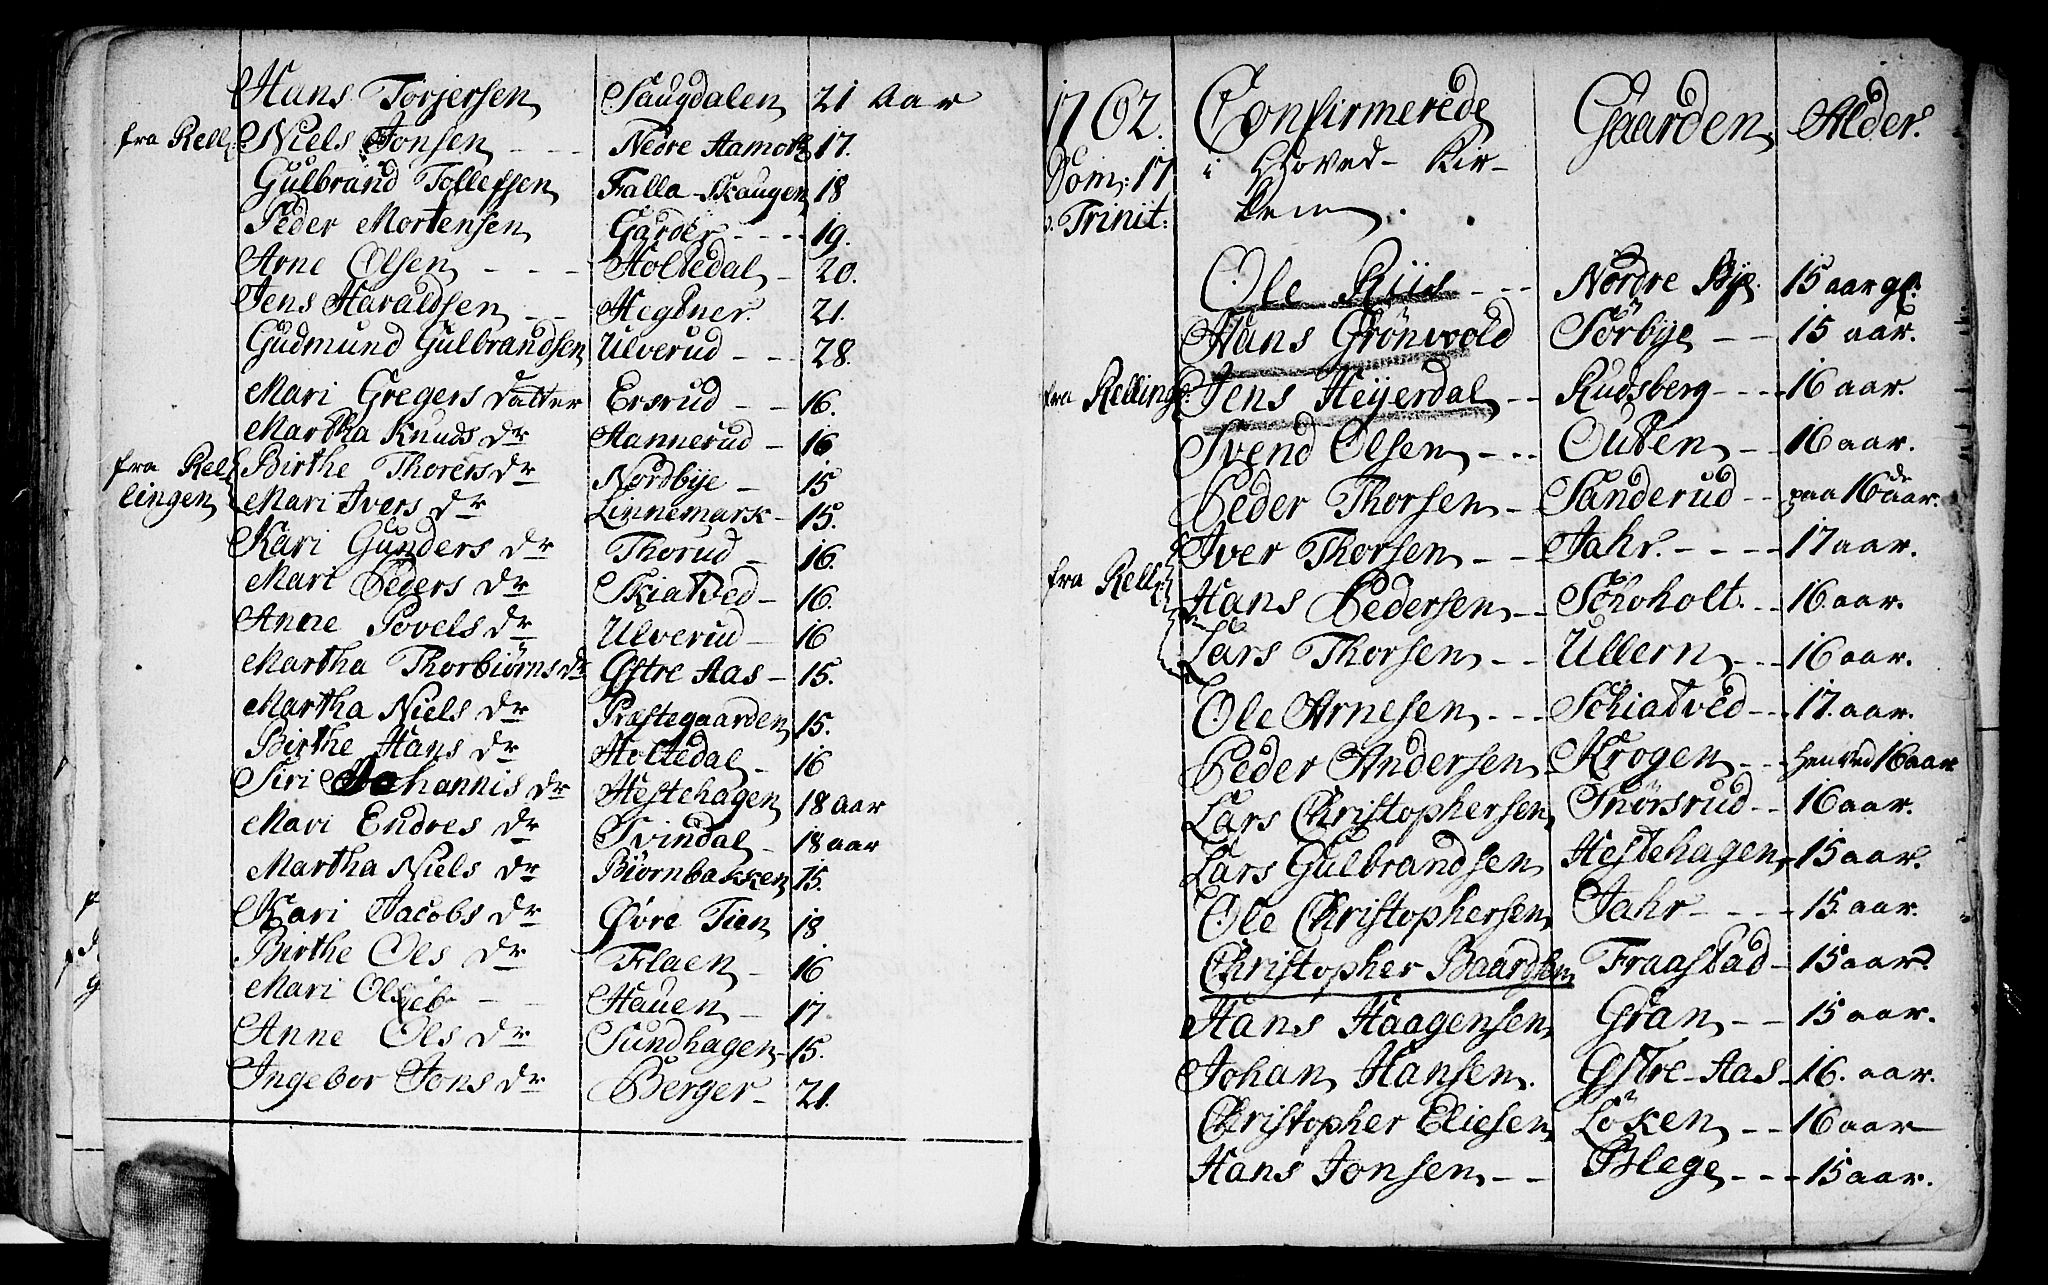 Hans Torjersen Saugdalen 21 Aar
fra Rell: Niels Jonsen Nedre Aamork 17.
Gulbrand Tollefsen Falla-Skaugen 18
Peder Mortensen Garder 19.
Arne Olsen Holtedal 20.
Jens Haraldsen Hegtner 21.
Gudmund Gulbrandsen Ulverud 28.
Mari Gregers datter Ersrud 16.
Martha Knuds dr Hannerud 16
fra Rel- Birthe Thorers dr Nordbye 15
lingen Mari Ivers dr Linnemark 15.
Kari Gunders dr Thorud 16.
Mari Peders dr Skiatved 16.
Anne Povels dr Ulverud 16
Martha Thorbiørns dr Østre Aas 15.
Martha Niels dr Præstegaarden 15.
Birthe Hans dr Holtedal 16
Siri Johannis dr Hestehagen 18 aar
Mari Endres dr Svindal 18 aar
Martha Niels dr Biørnbakken 15.
Kari Jacobs dr Øvre Tien 18
Birthe Ols dr Flaen 16
Mari Ols Hauen 17.
Anne Ols dr Sundhagen 15.
Ingebor Jons dr Berger 21.
1762. Confirmerede Gaarden Alder.
Dom: 17 i Hoved-Kir-
p. Trinit: ken.
Ole Riis Nordre Bye 15 aar gl.
Hans Grönvold Sörbye 15 aar.
fra Relling: Jens Heyerdal Rudsberg 16 aar.
Svend Olsen Outen 16 aar.
Peder Thorsen Sanderud paa 16de aar.
Iver Thorsen Jahr. 17 aar.
fra Rell: Hans Pedersen Schoholt. 16 aar.
Lars Thorsen Ullern 16 aar.
Ole Arnesen Schiatved 17. aar.
Peder Andersen Krogen henved 16 aar
Lars Christophersen Snörsrud 16 aar.
Lars Gulbrandsen Hestehagen 15 aar.
Ole Christophersen Jahr 15 aar.
Christopher Baardsen Fraastad 15 aar.
Hans Haagensen Gran 15 aar.
Johan Hansen. Østre-Aas 16. aar.
Christopher Eliesen Löken 16 aar
Hans Jonsen Hlege 15 aar.